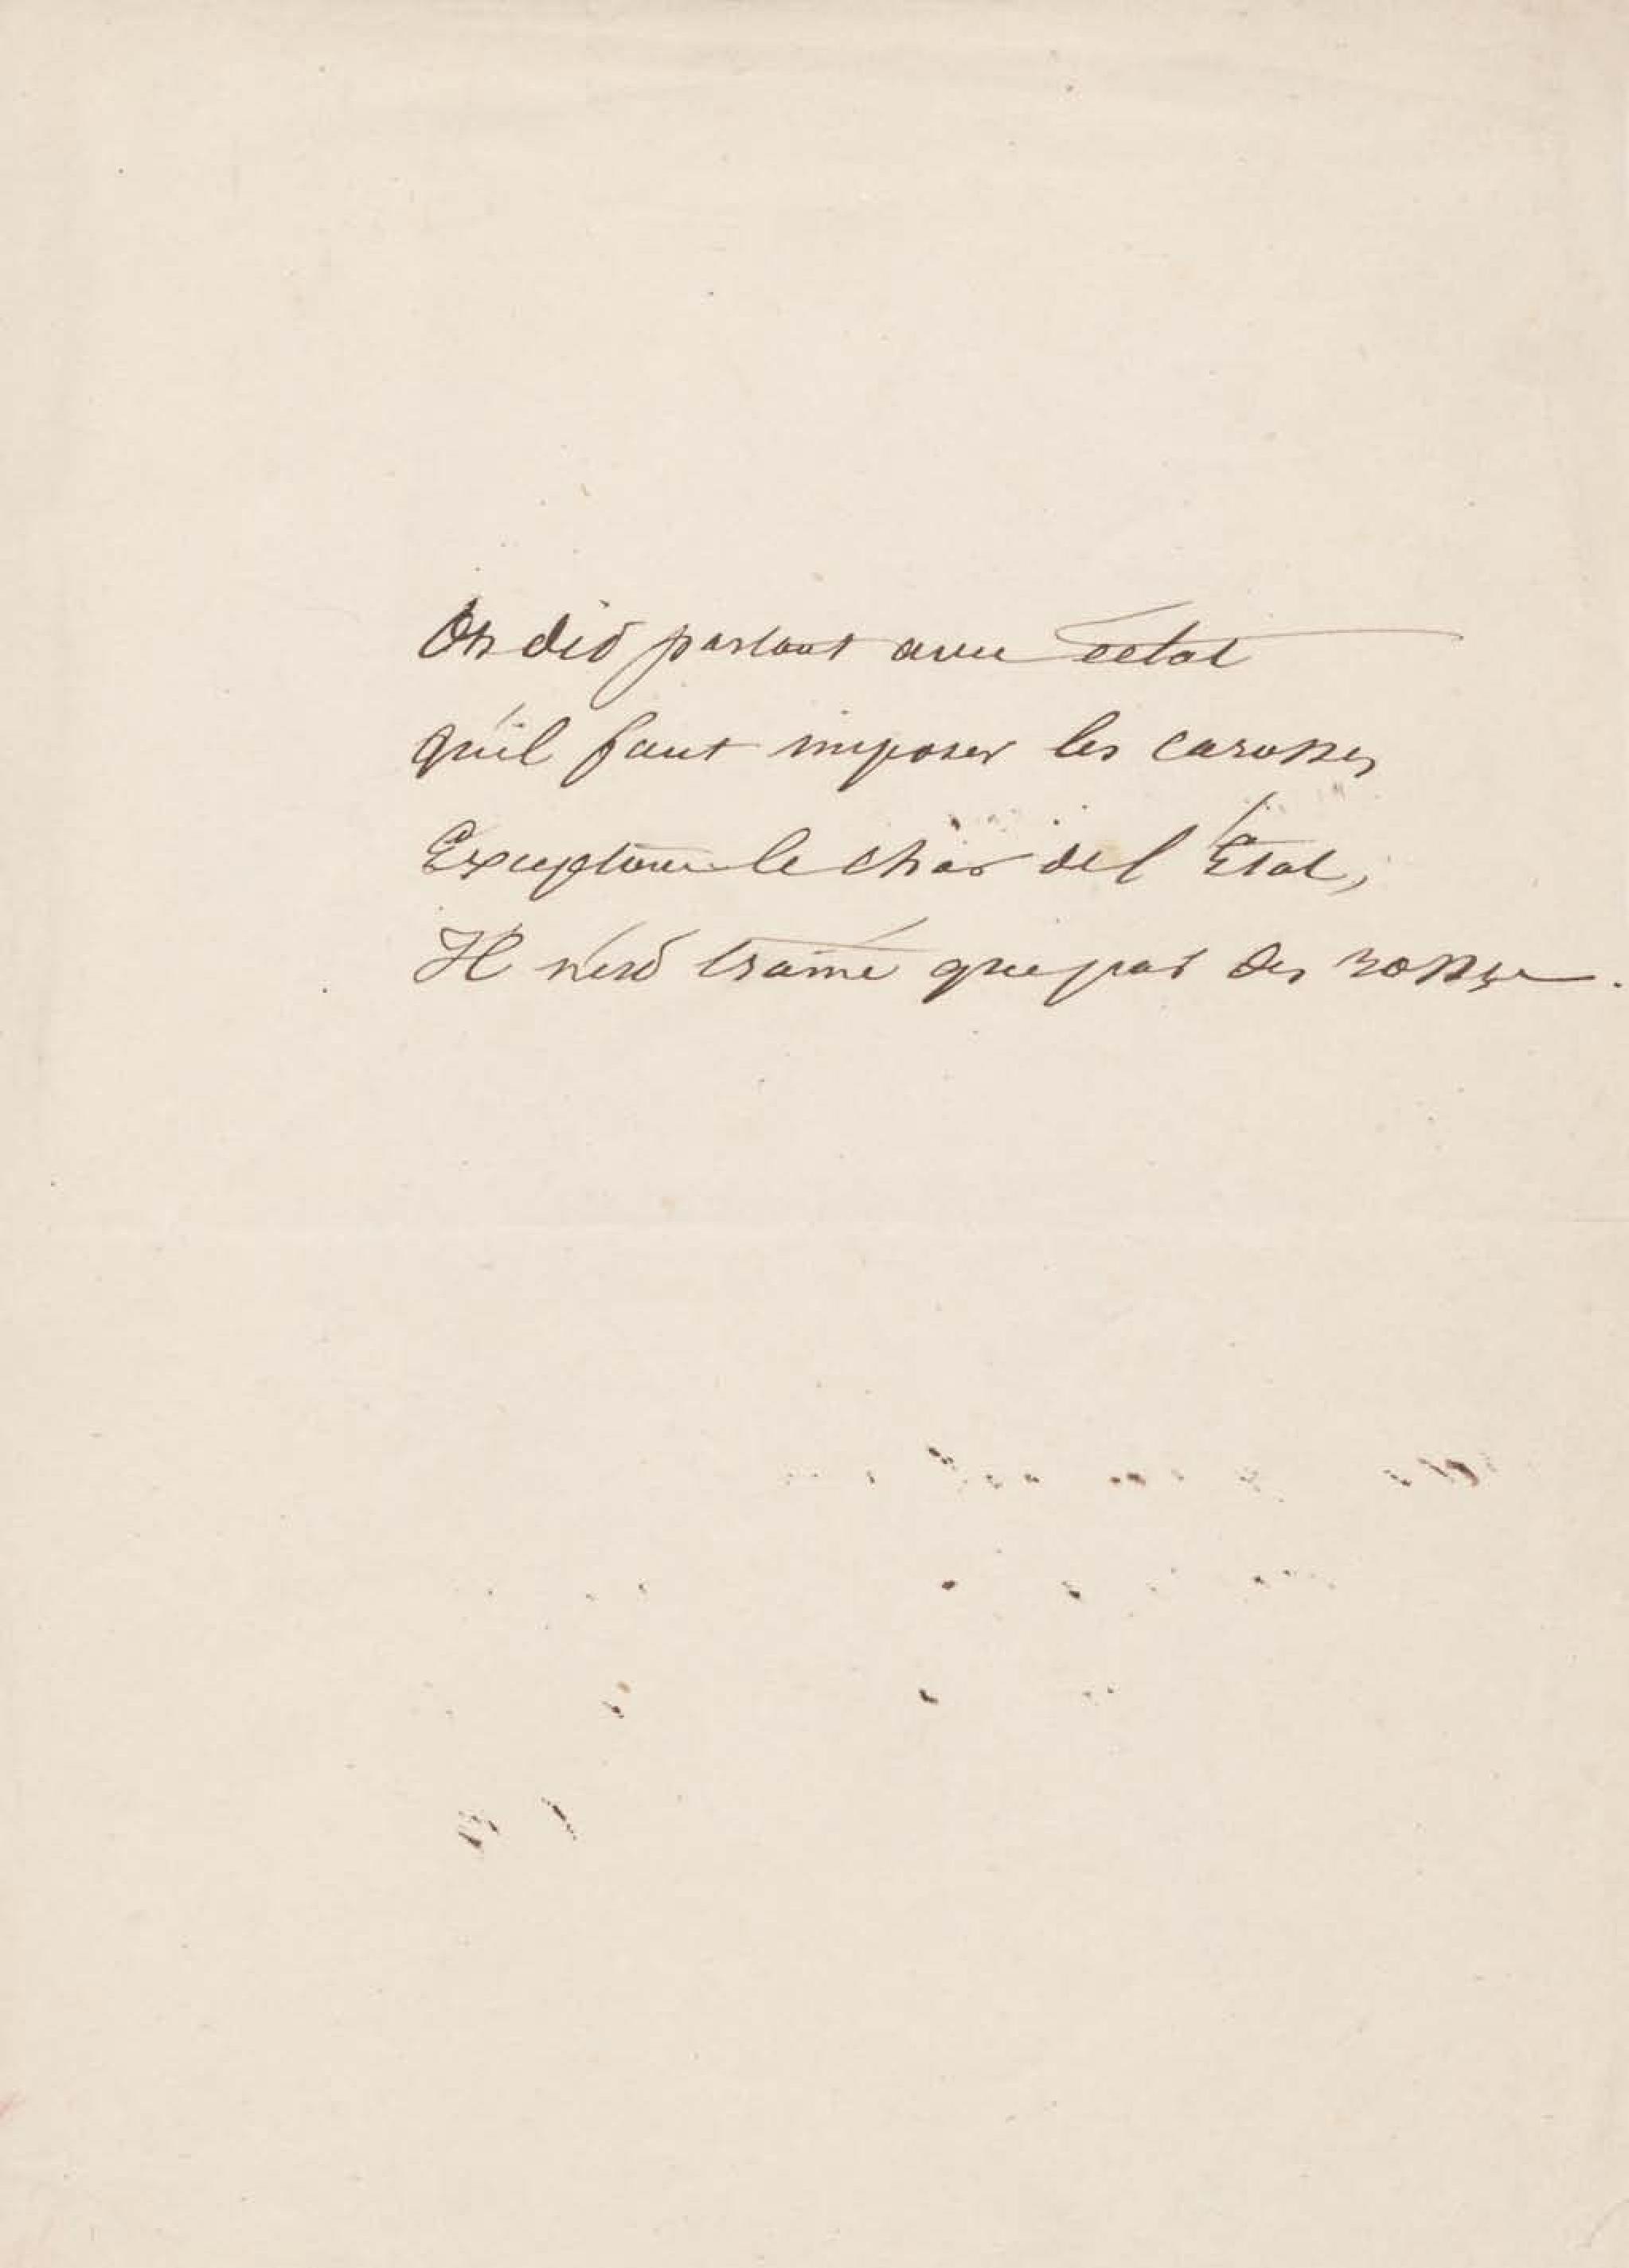 On dit partout avec éclat
qu'il faut imposer les carosses
Exceptons le char de l'État,
Il n'est trainé que par des rosses.